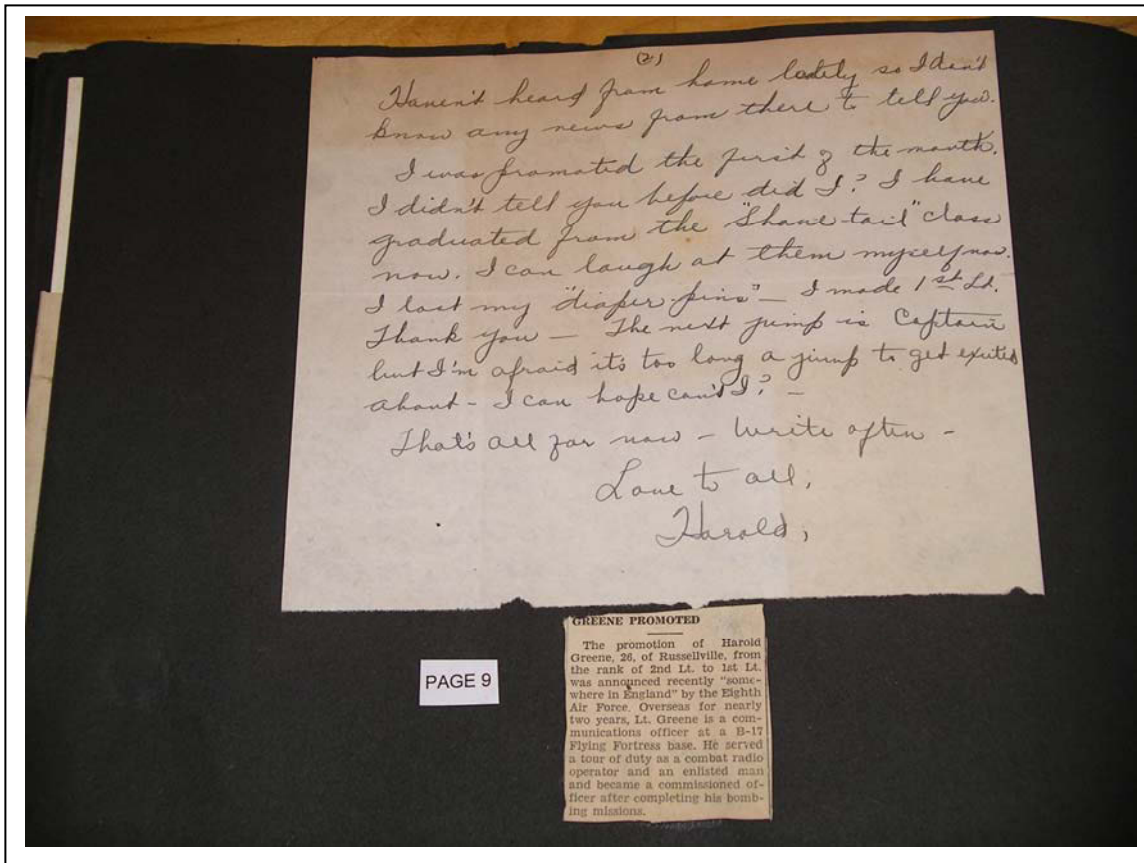 (2)
Haven't heard from home lately so I don't
know any news from there to tell you.
I was promoted the first of the month.
I didn't tell you before did I? I have
graduated from the "Shave tail" class
now. I can laugh at them myself now.
I lost my "diaper pins" — I made 1st Lt.
Thank you — The next jump is Captain
but I'm afraid it's too long a jump to get exited
about - I can hope can't I? —
That's all for now — Write often —
Love to all,
Harold,
GREENE PROMOTED
The promotion of Harold
Greene, 26, of Russellville, from
the rank of 2nd Lt. to 1st Lt.
was announced recently "some-
where in England" by the Eighth
Air Force. Overseas for nearly
two years, Lt. Greene is a com-
munications officer at a B-17
Flying Fortress base. He served
a tour of duty as a combat radio
operator and an enlisted man
and became a commissioned of-
ficer after completing his bomb-
ing missions.
PAGE 9